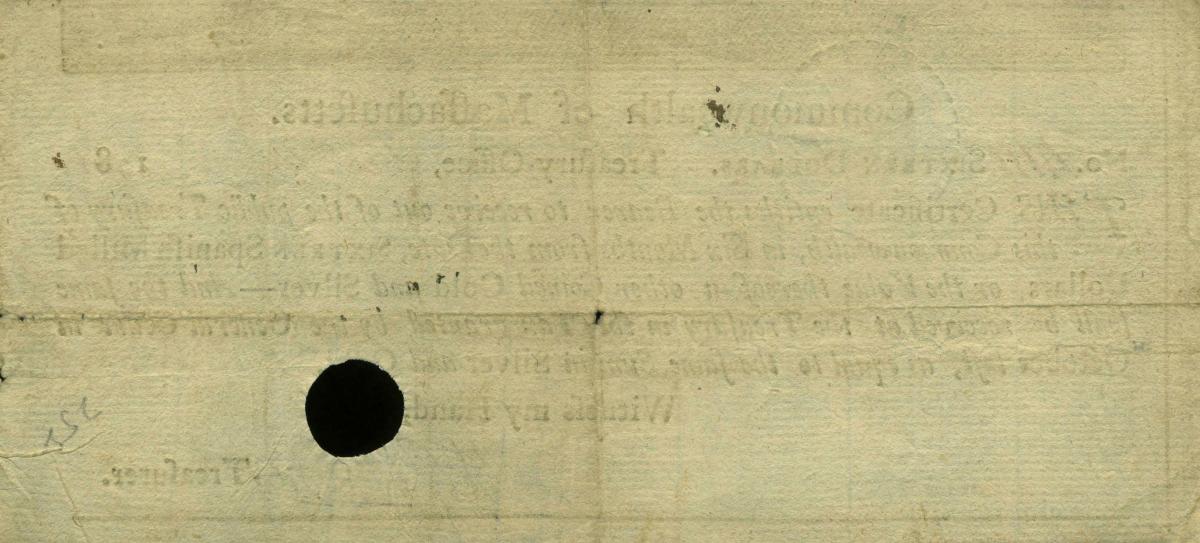 Commonwealth of Massachusetts.
No. SIXTEEN DOLLARS. Treasury-Office, 178
THIS Certificate entitles the Bearer to receive out of the public Treasury of
this Commonwealth, in Six Months from the Date, SIXTEEN Spanish milled
Dollars, or the Value thereof in other coined Gold and Silver— And the same
shall be received at the Treasury in the Tax granted by the General Court in
October last, as equal to the same Sum in Silver and
Witness my Hand,
Treasurer.